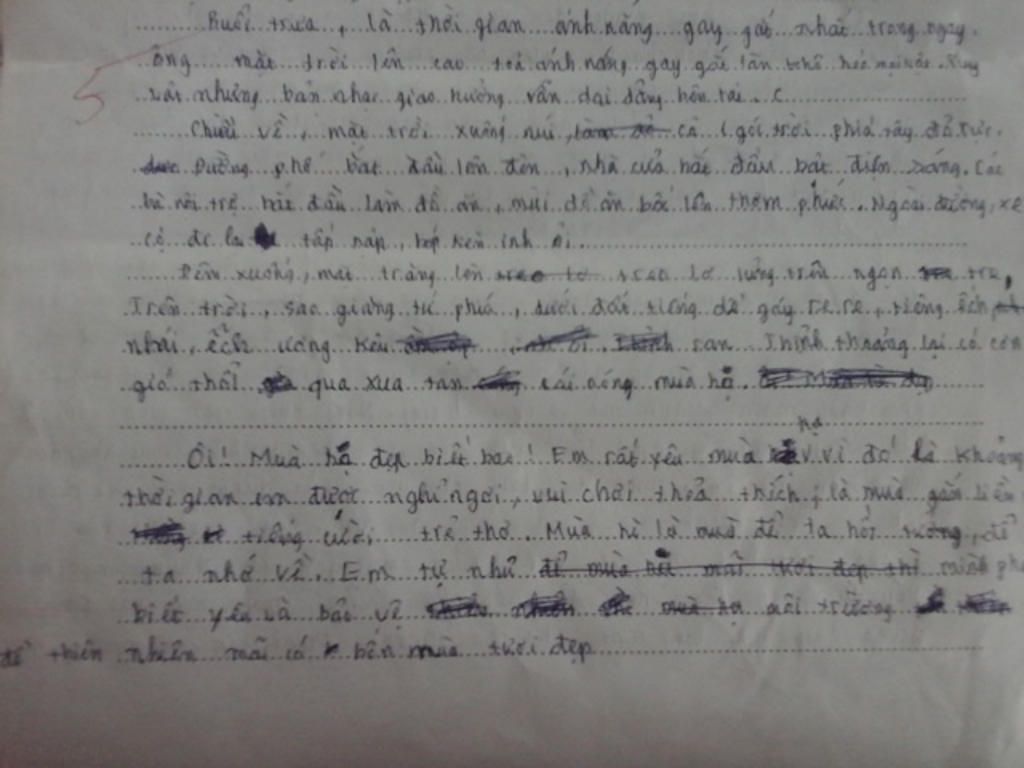 Buổi trưa, là thời gian ánh nắng gay gắt nhất trong ngày.
5 ông mặt trời lên cao toả ánh nắng gay gắt
vất những bản nhạc giao hưởng vẫn dai dẳng tồn tại. C
Chiều về, mặt trời xuống núi, cả 1 gói trời phía tây đỏ rực.
Đường phố bắt đầu lên đèn, nhà cửa bắt đầu bật điện sáng. Các
bà nội trợ bắt đầu làm đồ ăn, mùi đồ ăn bốc lên thơm phức. Ngoài đường, xe
cộ đi lại tấp nập, bóp kèn inh ỏi.
Đêm xuống, mặt trăng lên treo lơ lửng trên ngọn tre,
Trên trời, sao giăng tứ phía, dưới đất tiếng dế gáy re re, tiếng ếch
nhái, ễch ương kêu ran. Thỉnh thoảng lại có cơn
gió thổi qua xua tan cái nóng mùa hạ.
Ôi! Mùa hạ đẹp biết bao! Em rất yêu mùa hạ vì đó là khoảng
thời gian em được nghỉ ngơi, vui chơi thoả thích, là mùa gắn liền
tiếng cười trẻ thơ. Mùa hè là mùa để ta hồi tưởng, để
ta nhớ về. Em tự nhủ mình phải
biết yêu và bảo vệ môi trường
để thiên nhiên mãi có bốn mùa tươi đẹp